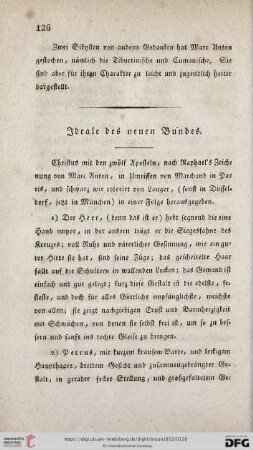 126
Zwei Sibyllen von andern Gedanken hat Marc Anton
gestochen, nämlich die Tiburtinische und Cumanische. Sie
sind aber für ihren Charakter zu leicht und jugendlich heiter
dargestellt.
Ideale des neuen Bundes.
Christus mit den zwölf Aposteln, nach Raphael's Zeich-
nung von Marc Anton, in Umrissen von Marchand in Pa-
ris, und schwarz wie coloriet von Langer, (sonst in Düssel-
dorf, jetzt in München) in einer Folge herausgegeben.
1) Der Herr, (denn das ist er) hebt segnend die eine
Hand empor, in der andern trägt er die Siegesfahne des
Kreuzes; voll Ruhe und väterlicher Gesinnung, wie ein gu-
ter Hirte sie hat, sind seine Züge; das gescheitelte Haar
fällt auf die Schultern in wallenden Locken; das Gewand ist
einfach und gut gelegt; kurz diese Gestalt ist die edelste, fe-
steste, und doch für alles Göttliche empfänglichste, weichste
von allen; sie zeigt nachgiebigen Ernst und Barmherzigkeit
mit Schwächen, von denen sie selbst frei ist, um so zu bes-
sern und sanft ins rechte Gleise zu bringen.
2) Petrus, mit kurzem krausem Barte, und lockigem
Haupthaare, breitem Gesicht und zusammengedrängter Ge-
stalt, in gerader fester Stellung, und großgefaltetem Ge-